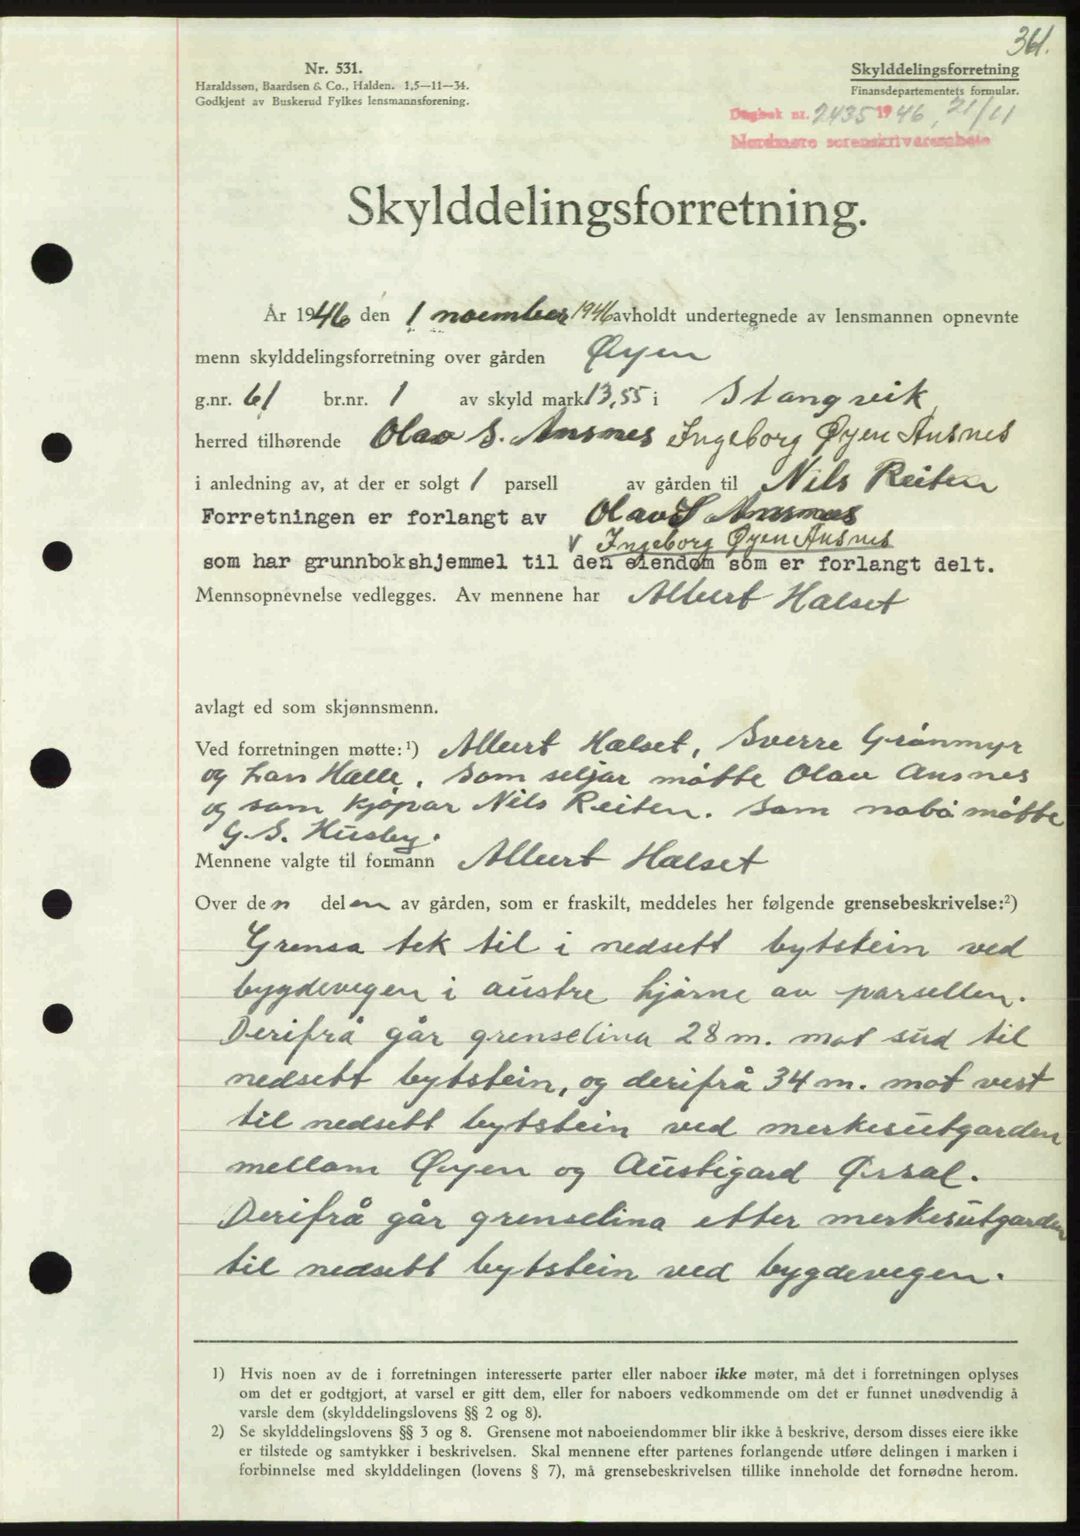 361.
Nr. 531.
Haraldssøn, Baardsen & Co., Halden. 1,5—11—34.
Godkjent av Buskerud Fylkes lensmannsforening.
Skylddelingsforretning
Finansdepartementets formular.
Dagbok nr. 2435 1946, 21/11
Nordmøre sorenskrivarembete
Skylddelingsforretning.
År 1946 den 1 noember 1946 avholdt undertegnede av lensmannen opnevnte
menn skylddelingsforretning over gården Øyen
g.nr. 61 br.nr. 1 av skyld mark 13,55 i Stangvik
herred tilhørende Olav S. Ansnes Ingeborg Øyen Ansnes
i anledning av, at der er solgt 1 parsell av gården til Nils Reiten
Forretningen er forlangt av Olav S Ansnes
V Ingeborg Øyen Ansnes
som har grunnbokshjemmel til den eiendom som er forlangt delt.
Mennsopnevnelse vedlegges. Av mennene har Albert Halset
avlagt ed som skjønnsmenn.
Ved forretningen møtte:¹) Albert Halset, Sverre Grönmyr
og Lars Halle. Som seljar måtte Olav Ansnes
og som kjöpar Nils Reiten. Som nabo måtte
G. S. Husby.
Mennene valgte til formann Albert Halset
Over den delen av gården, som er fraskilt, meddeles her følgende grensebeskrivelse:²)
Grensa tek til i nedsett bytstein ved
bygdevegen i austre hjörne av parsellen.
Derifrå går grenselina 28 m. mot sud til
nedsett bytstein, og derifrå 34 m. mot vest
til nedsett bytstein ved merkesutgarden
mellom Øyen og Austigard Ørsal.
Derifrå går grenselina etter merkesutgarden
til nedsett bytstein ved bygdevegen.
1) Hvis noen av de i forretningen interesserte parter eller naboer ikke møter, må det i forretningen oplyses
om det er godtgjort, at varsel er gitt dem, eller for naboers vedkommende om det er funnet unødvendig å
varsle dem (skylddelingslovens §§ 2 og 8).
2) Se skylddelingslovens §§ 3 og 8. Grensene mot naboeiendommer blir ikke å beskrive, dersom disses eiere ikke
er tilstede og samtykker i beskrivelsen. Skal mennene efter partenes forlangende utføre delingen i marken i
forbinnelse med skylddelingen (lovens § 7), må grensebeskrivelsen tillike inneholde det fornødne herom.